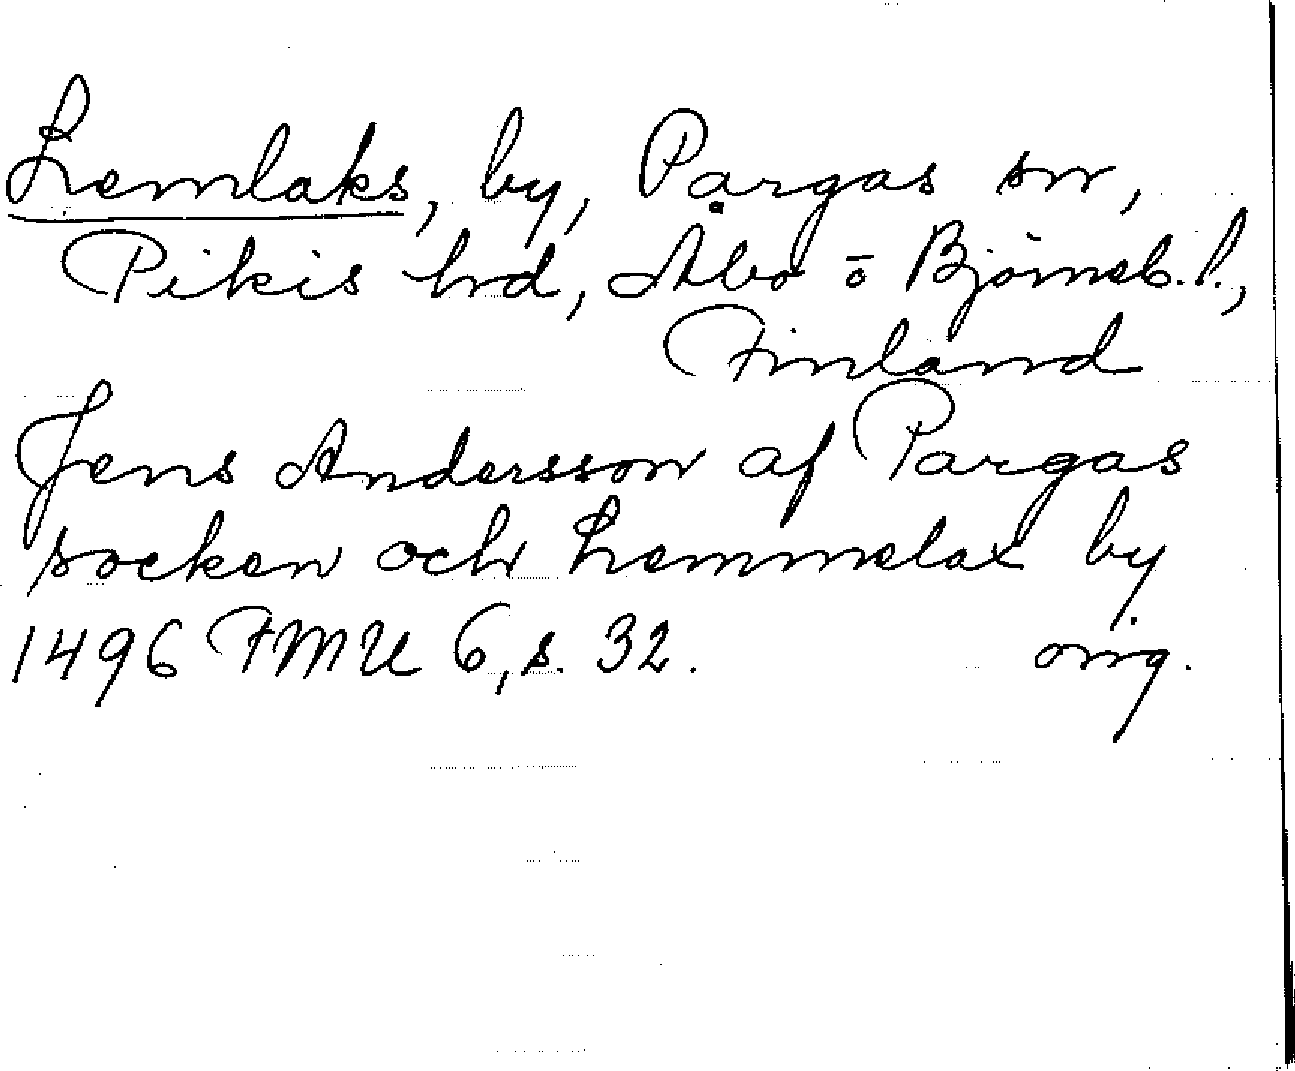 Lemlaks, by, Pargas sn,
Pikis hd, Åbo o Björneb. l.,
Finland
Jens Andersson af Pargas
socken och Lemmelax by
1496 FMU 6, s. 32. orig.